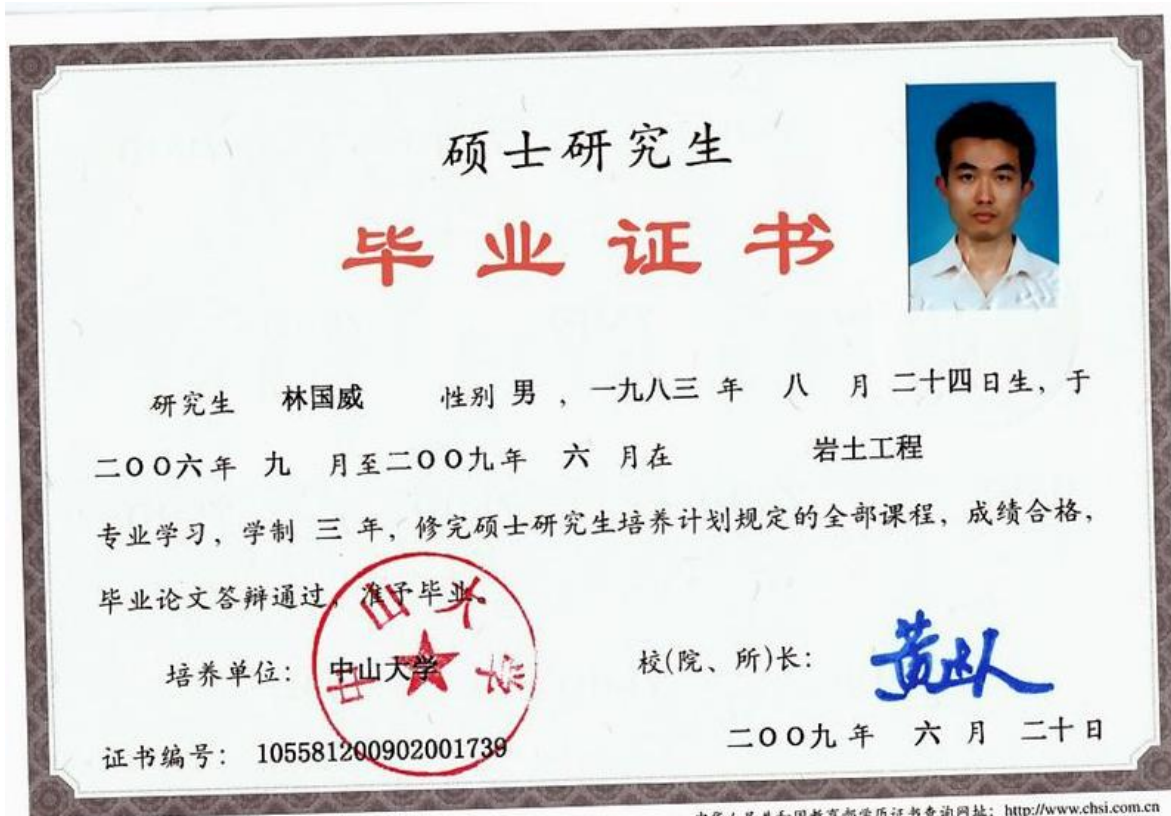 硕士研究生
毕业证书
研究生 林国威 性别 男 ，一九八三 年 八 月 二十四日生，于
二〇〇六年 九 月至二〇〇九年 六 月在 岩土工程
专业学习，学制 三 年，修完硕士研究生培养计划规定的全部课程，成绩合格，
毕业论文答辩通过，准予毕业。
中山大学
培养单位： 中山大学 校(院、所)长： 黄达人
二〇〇九年 六 月 二十日
证书编号： 105581200902001739
中华人民共和国教育部学历证书查询网址：http://www.chsi.com.cn